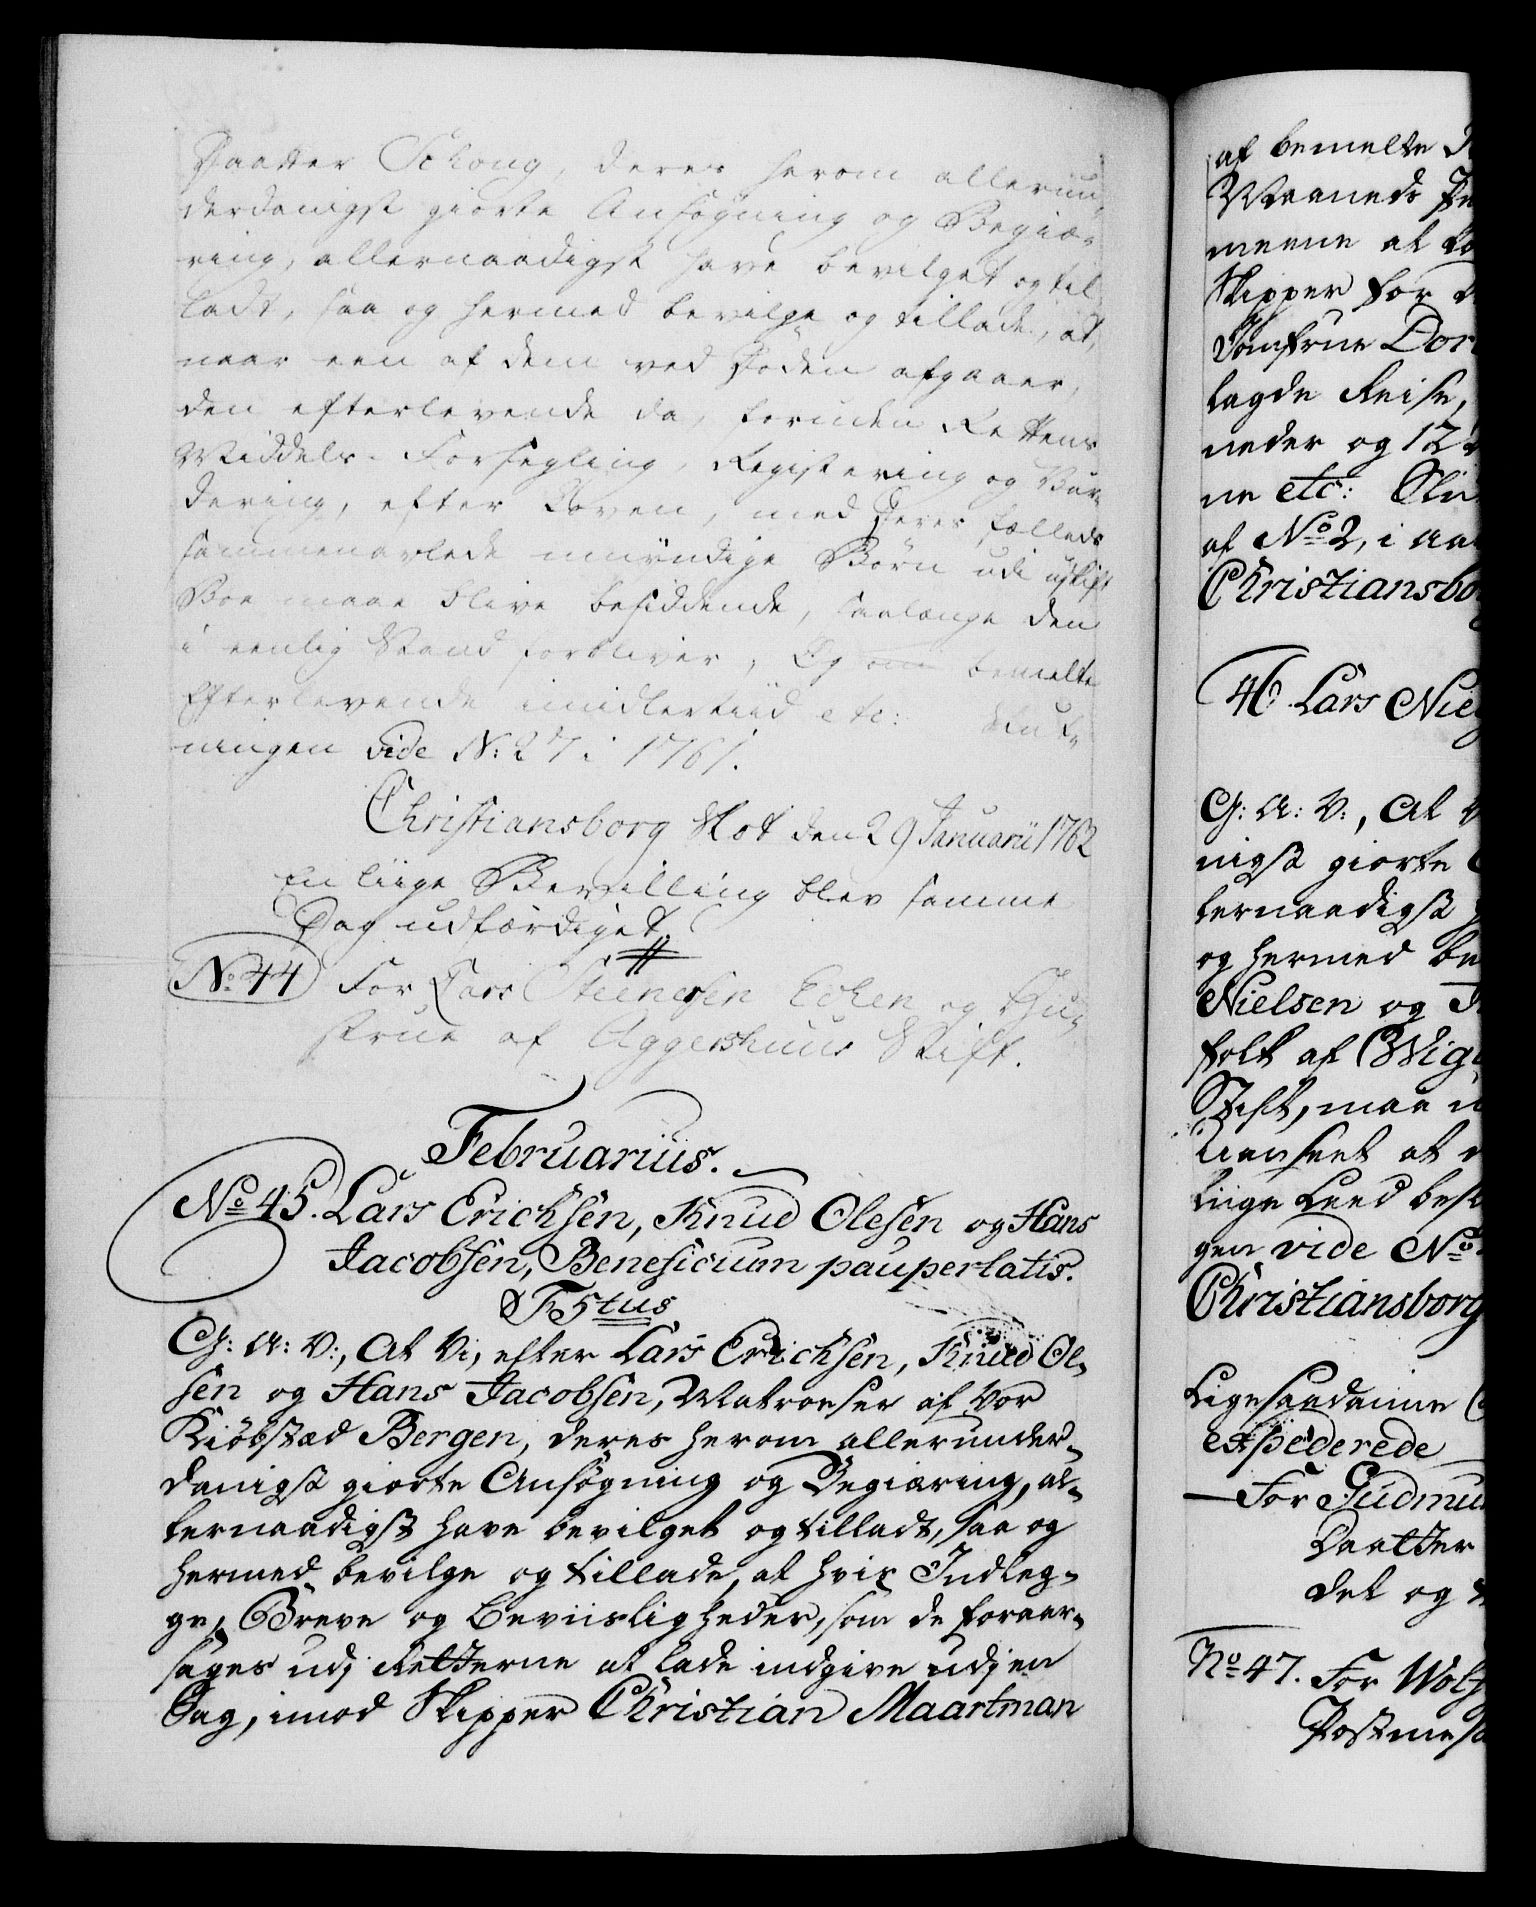 Daatter Schong, deres herom allerun-
derdanigst giorte Ansøgning og Begiæ-
ring, allernaadigst have bevilget og til
ladt, saa og hermed bevilge og tillade, at,
naar een af dem ved Døden afgaaer,
den efterlevende da, foruden Rettens
Middels Forsegling, Registering og Vur-
dering, efter Loven, med Deres fælleds
sammenavlede umyndige Børn udi uskift
Boe maae blive besiddende, saalænge den
i eenlig Stand forbliver, Og om bemelte
Efterlevende imidlertiid etc: Slut-
ningen vide N: 27 i 1761.
Christiansborg Slot den 29 Januarii 1762
En liige Bevilling blev samme
Dag udfærdiget.
No. 44 For Lars Steenersen Echen og Hu-
strue af Aggershuus Stift.
Februarius.
No 45. Lars Erichsen, Knud Olesen og Hans
Jacobsen, Beneficium paupertatis.
F 5tus
G: A: V:, At Vi, efter Lars Erichsen, Knud Ol-
sen og Hans Jacobsen, Matroeser af Vor
Kiöbstæd Bergen, deres herom allerunder-
danigst giorte Ansøgning og Begiæring, al-
lernaadigst have bevilget og tilladt, saa og
hermed bevilge og tillade, at hvis Indleg-
ge, Breve og Beviisligheder, som de foraar-
sages udj Retterne at lade indgive udj en
Sag, imod Skipper Christian Maartman
af bemelte
Maaneds
meene at
Skipper for
Jomfrue
lagde Reise,
neder og 12
ne etc:
af No 2, i
46. Lars
G: A: V:, At
nigst giorte
lernaadigst
og hermed
Nielsen og
folk af
Stift, maa
Uanseet at
liige Leed
gen vide No
Christiansborg
Ligesaadanne
expederede
For Gudmu
Daatter
det og
No 47. For